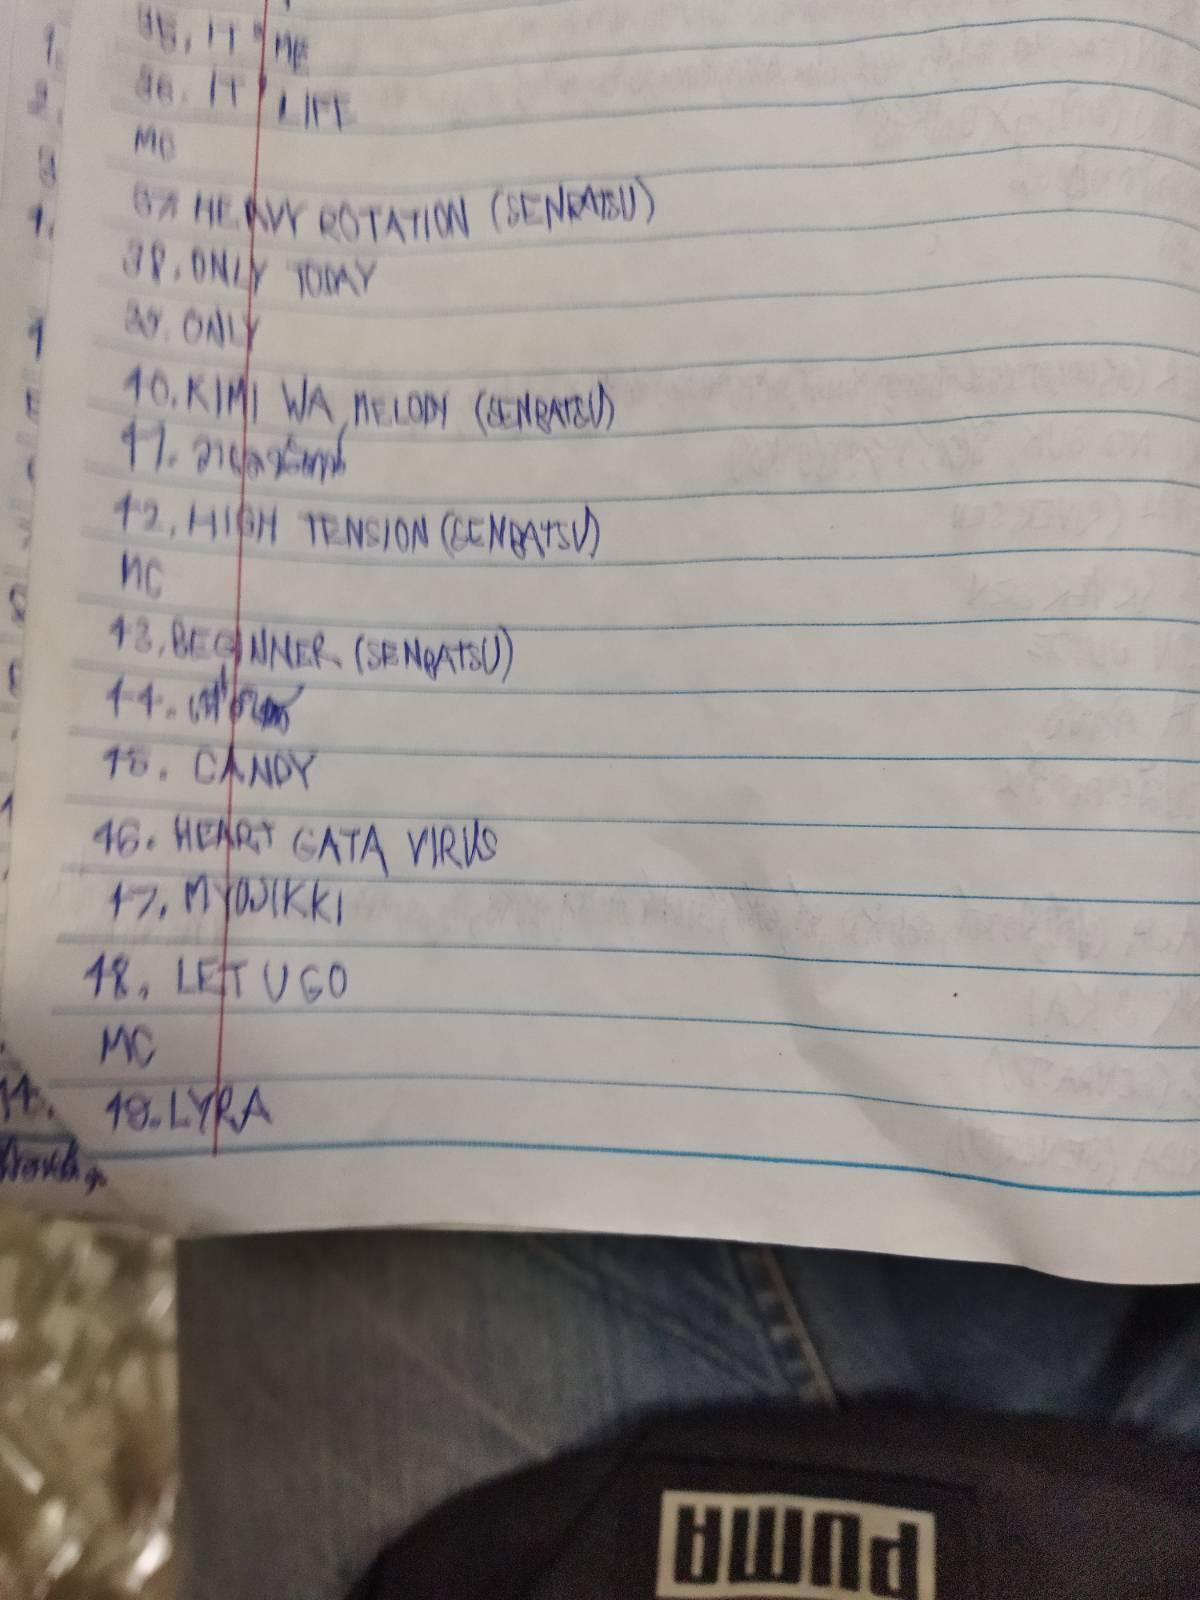 35. IT'ME
36. IT'LIFE
MC
37 HEAVY ROTATION (SENBATSU)
38. ONLY TODAY
39. ONLY
40. KIMI WA MELODY (SENBATSU)
41.
42. HIGH TENSION (SENBATSU)
MC
43. BEGINNER (SENBATSU)
44.
45. CANDY
46. HEART GATA VIRUS
47. MYOJIKKI
48. LET U GO
MC
49. LYRA
PUMA